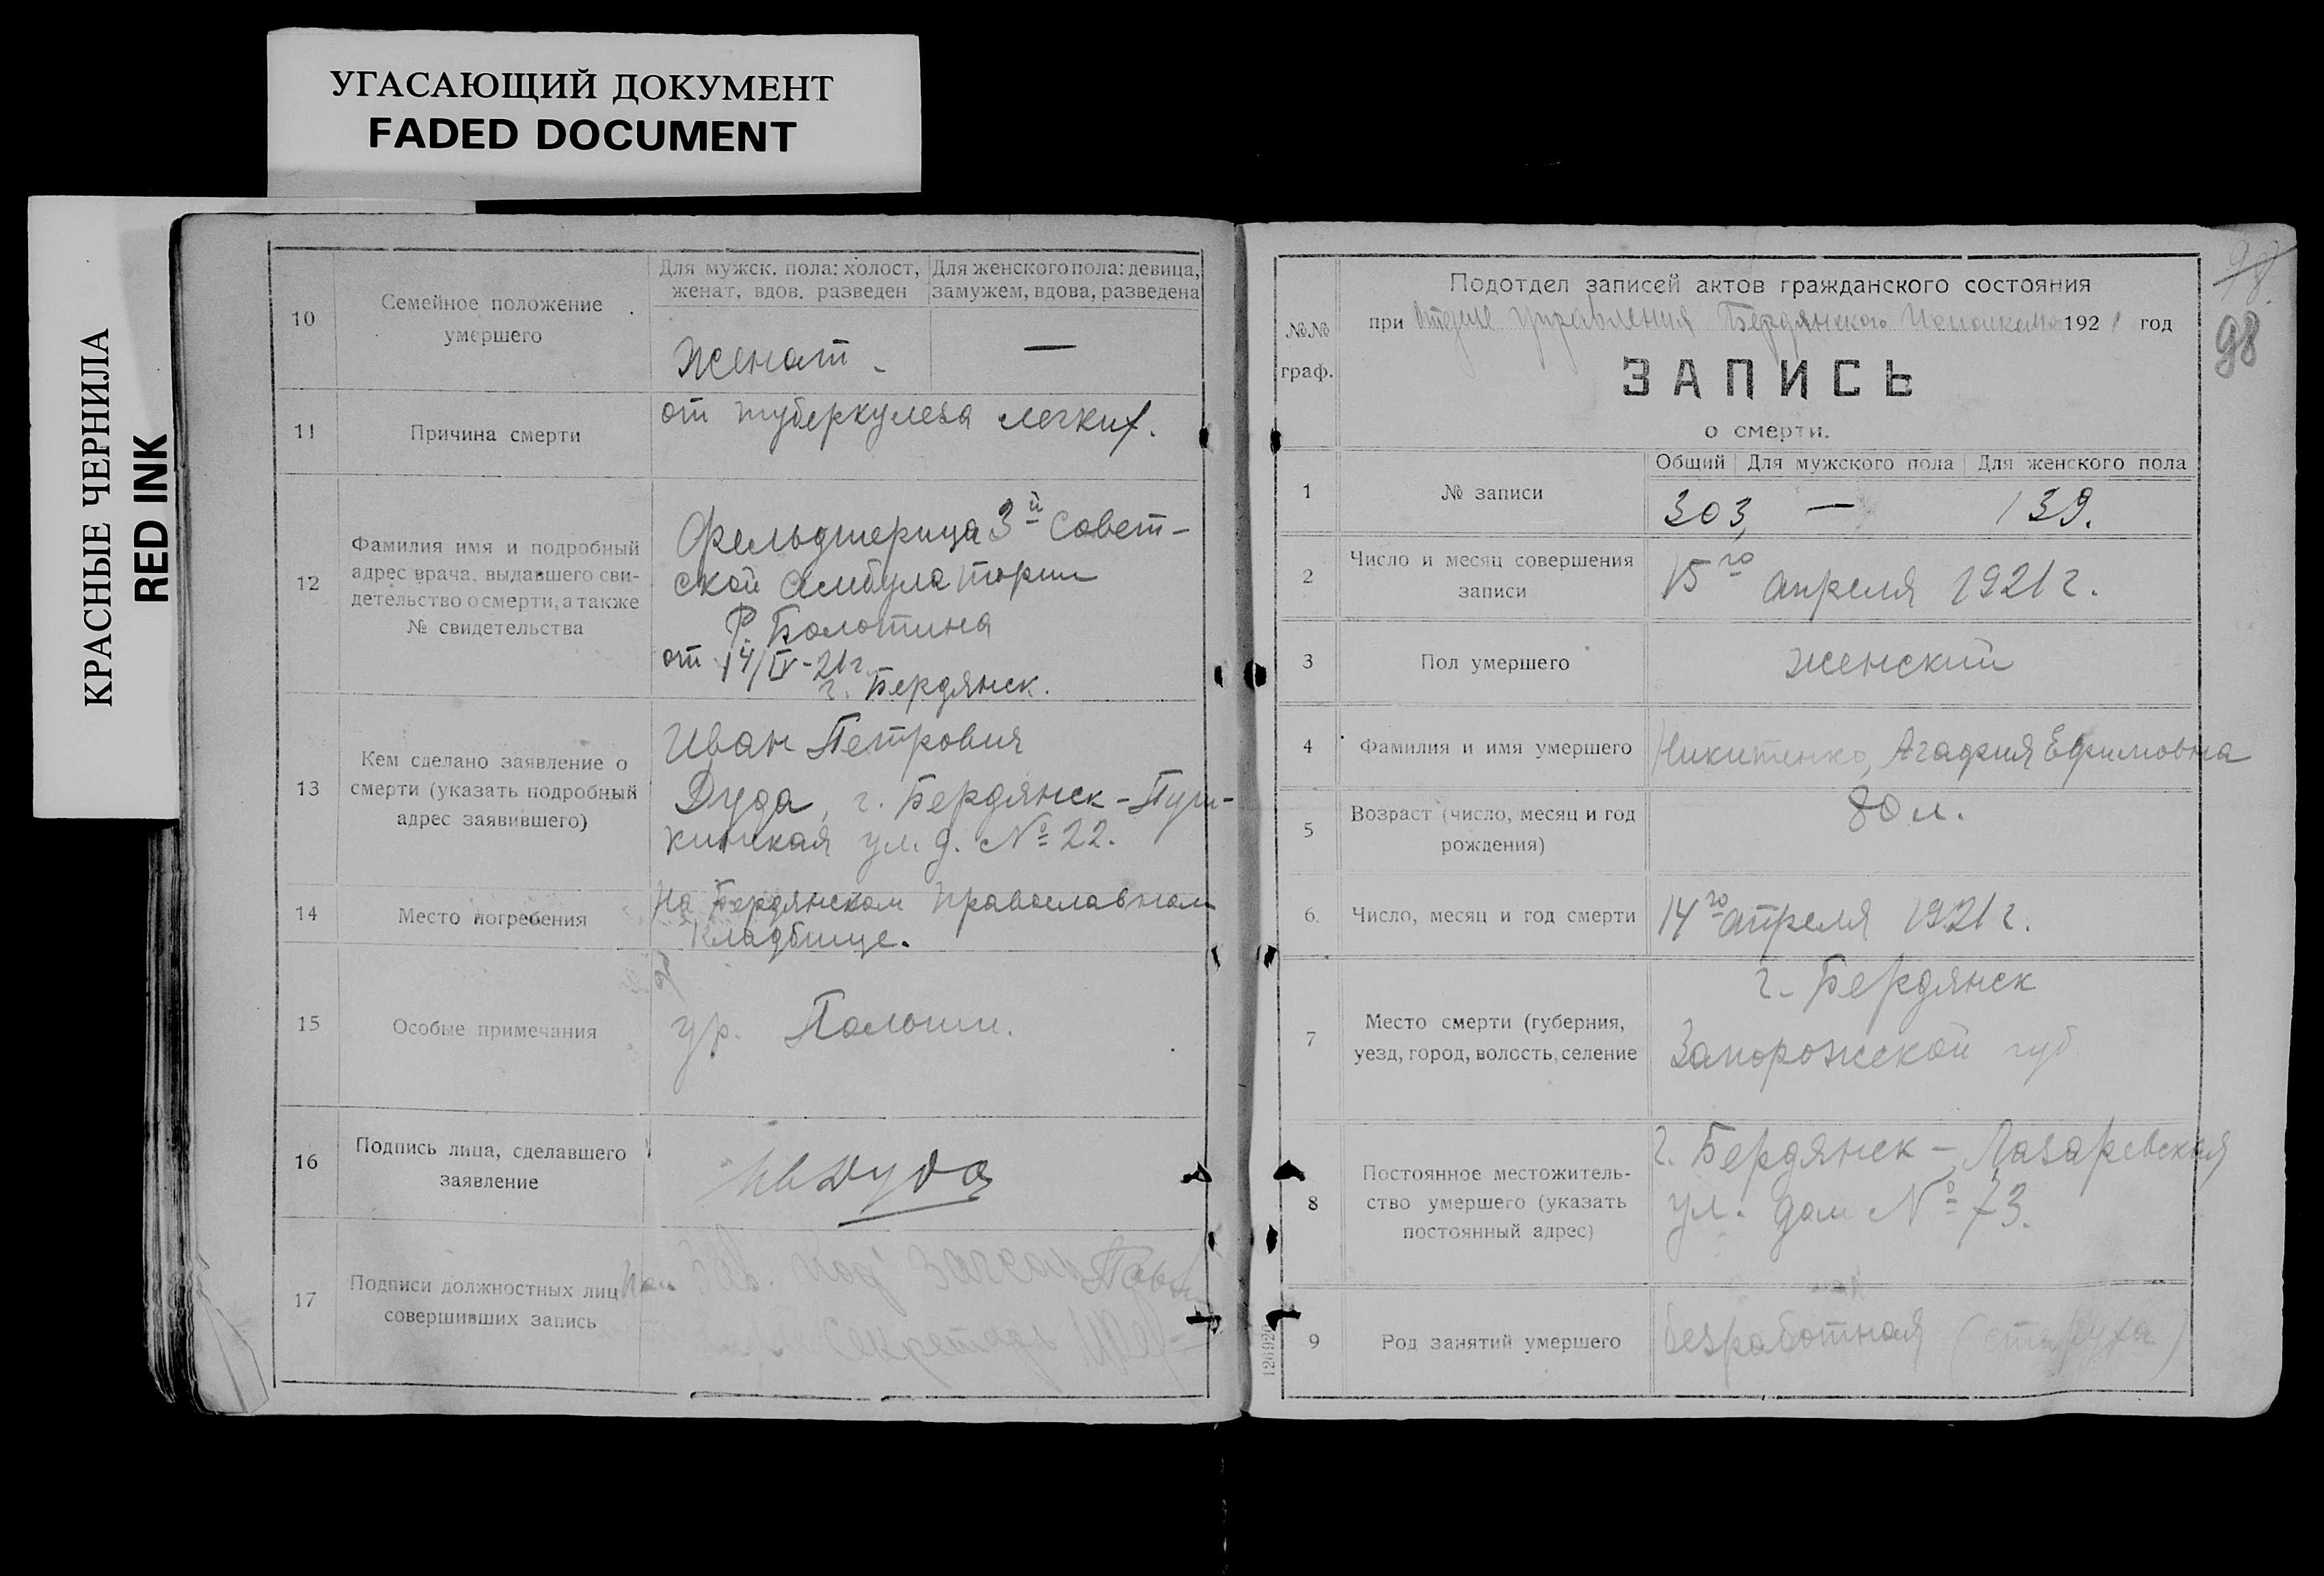 УГАСАЮЩИЙ ДОКУМЕНТ
FADED DOCUMENT
КРАСНЫЕ ЧЕРНИЛА
RED INK
10
Семейное положение
умершего
Для мужск. пола: холост,
женат, вдов, разведен
Для женского пола: девица,
замужем, вдова, разведена
Женат -
—
11
Причина смерти
от туберкулеза легких.
12
Фамилия имя и подробный
адрес врача, выдавшего сви-
детельство о смерти, а также
№ свидетельства
Фельдшерица 3й Совет-
ской Амбулатории
Р. Болотина
от 14/IV-21г.
г. Бердянск.
13
Кем сделано заявление о
смерти (указать подробный
адрес заявившего)
Иван Петрович
Дуда, г. Бердянск - Пуш-
кинская ул. д. № 22.
14
Место погребения
На Бердянском Православном
Кладбище.
15
Особые примечания
ур. Польши.
16
Подпись лица, сделавшего
заявление
Ив Дуда
17
Подписи должностных лиц
совершивших запись
Зав. под
Секретарь
98
98
№№
граф.
Подотдел записей актов гражданского состояния
при Отделе Управления Бердянского Исполкома 1921 год
ЗАПИСЬ
о смерти.
1
№ записи
Общий
Для мужского пола
Для женского пола
303,
—
139.
2
Число и месяц совершения
записи
15го апреля 1921 г.
3
Пол умершего
женский
4
Фамилия и имя умершего
Никитенко, Агафия Ефимовна
5
Возраст (число, месяц и год
рождения)
80 л.
6.
Число, месяц и год смерти
14го апреля 1921 г.
7
Место смерти (губерния,
уезд, город, волость, селение
г. Бердянск
Запорожской губ
8
Постоянное местожитель-
ство умершего (указать
постоянный адрес)
г. Бердянск - Лазаревская
ул. дом № 73.
9
Род занятий умершего
безработная (старуха)
126920